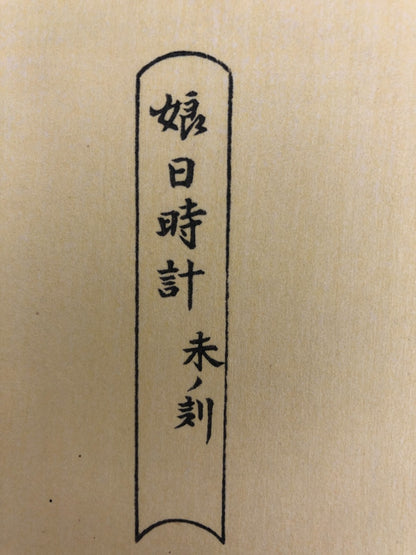 娘日時計
未ノ刻